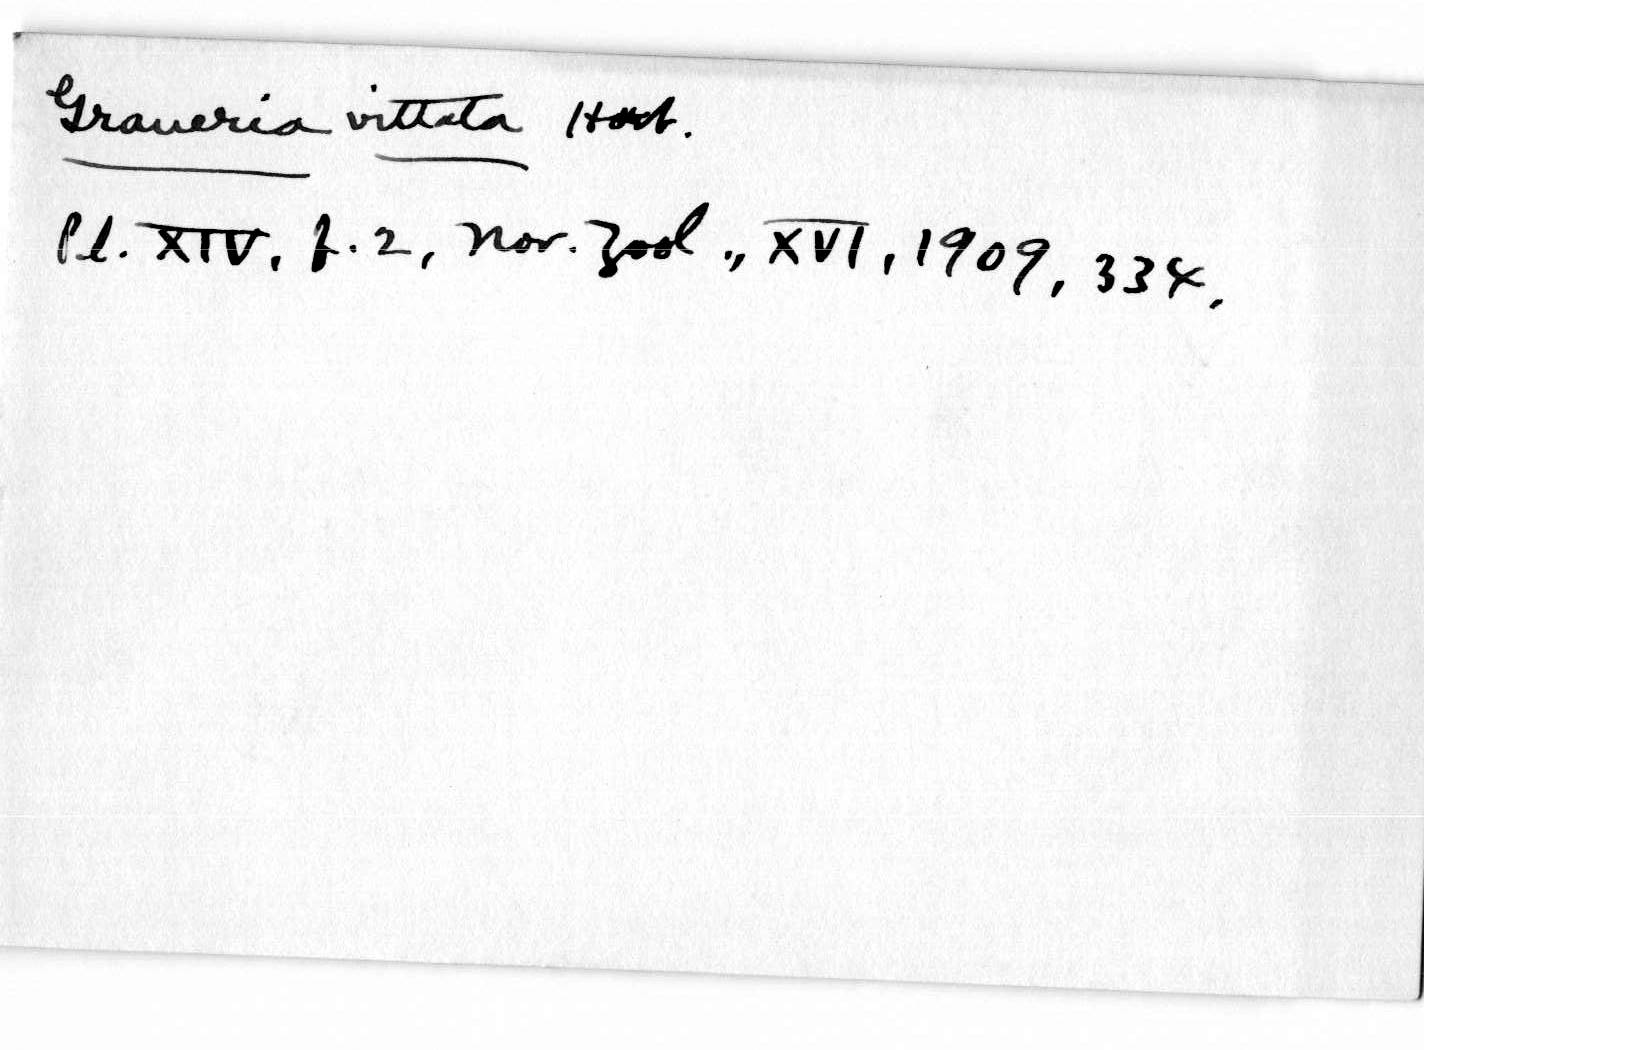 Graueria vittata Hart.
Pl. XIV, f. 2, Nov. Zool., XVI, 1909, 334.